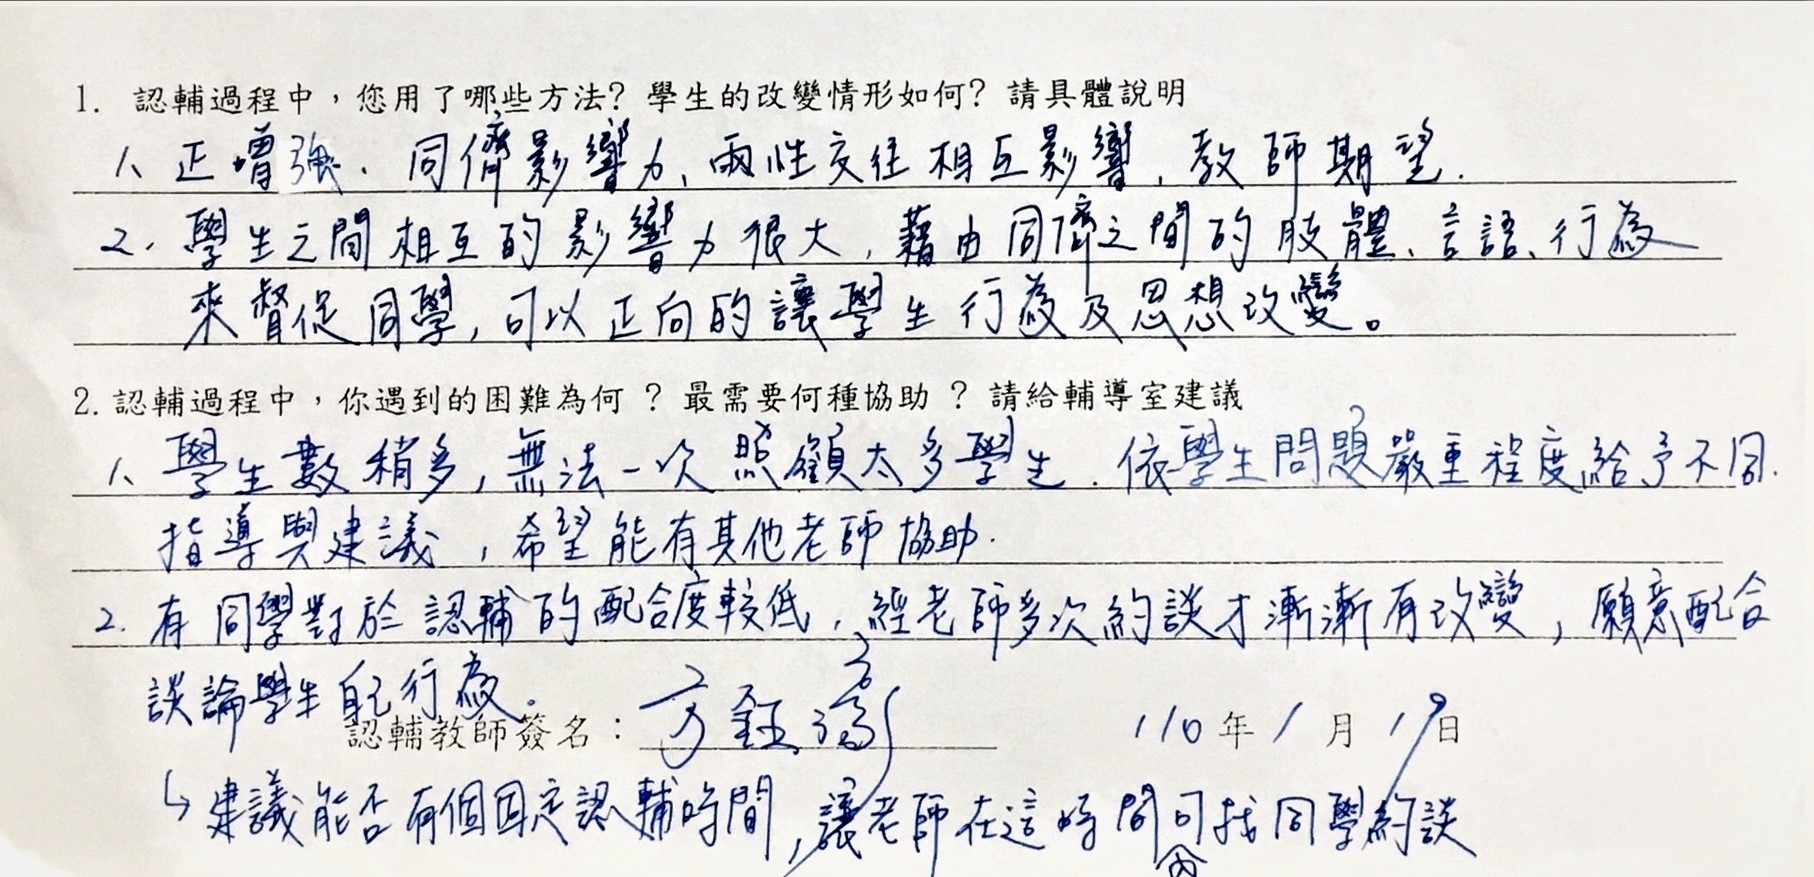 1. 認輔過程中，您用了哪些方法? 學生的改變情形如何? 請具體說明
1、正增強、同儕影響力、兩性交往相互影響、教師期望.
2、學生之間相互的影響力很大，藉由同儕之間的肢體、言語、行為
來督促同學，可以正向的讓學生行為及思想改變。
2. 認輔過程中，你遇到的困難為何 ? 最需要何種協助 ? 請給輔導室建議
1、學生數稍多，無法一次照顧太多學生．依學生問題嚴重程度給予不同
指導與建議，希望能有其他老師協助.
2. 有同學對於認輔的配合度較低，經老師多次約談才漸漸有改變，願意配合
談論學生自己行為。
認輔教師簽名：方鈺 110年1月19日
↳建議能否有個固定認輔時間，讓老師在這時間內可找同學約談